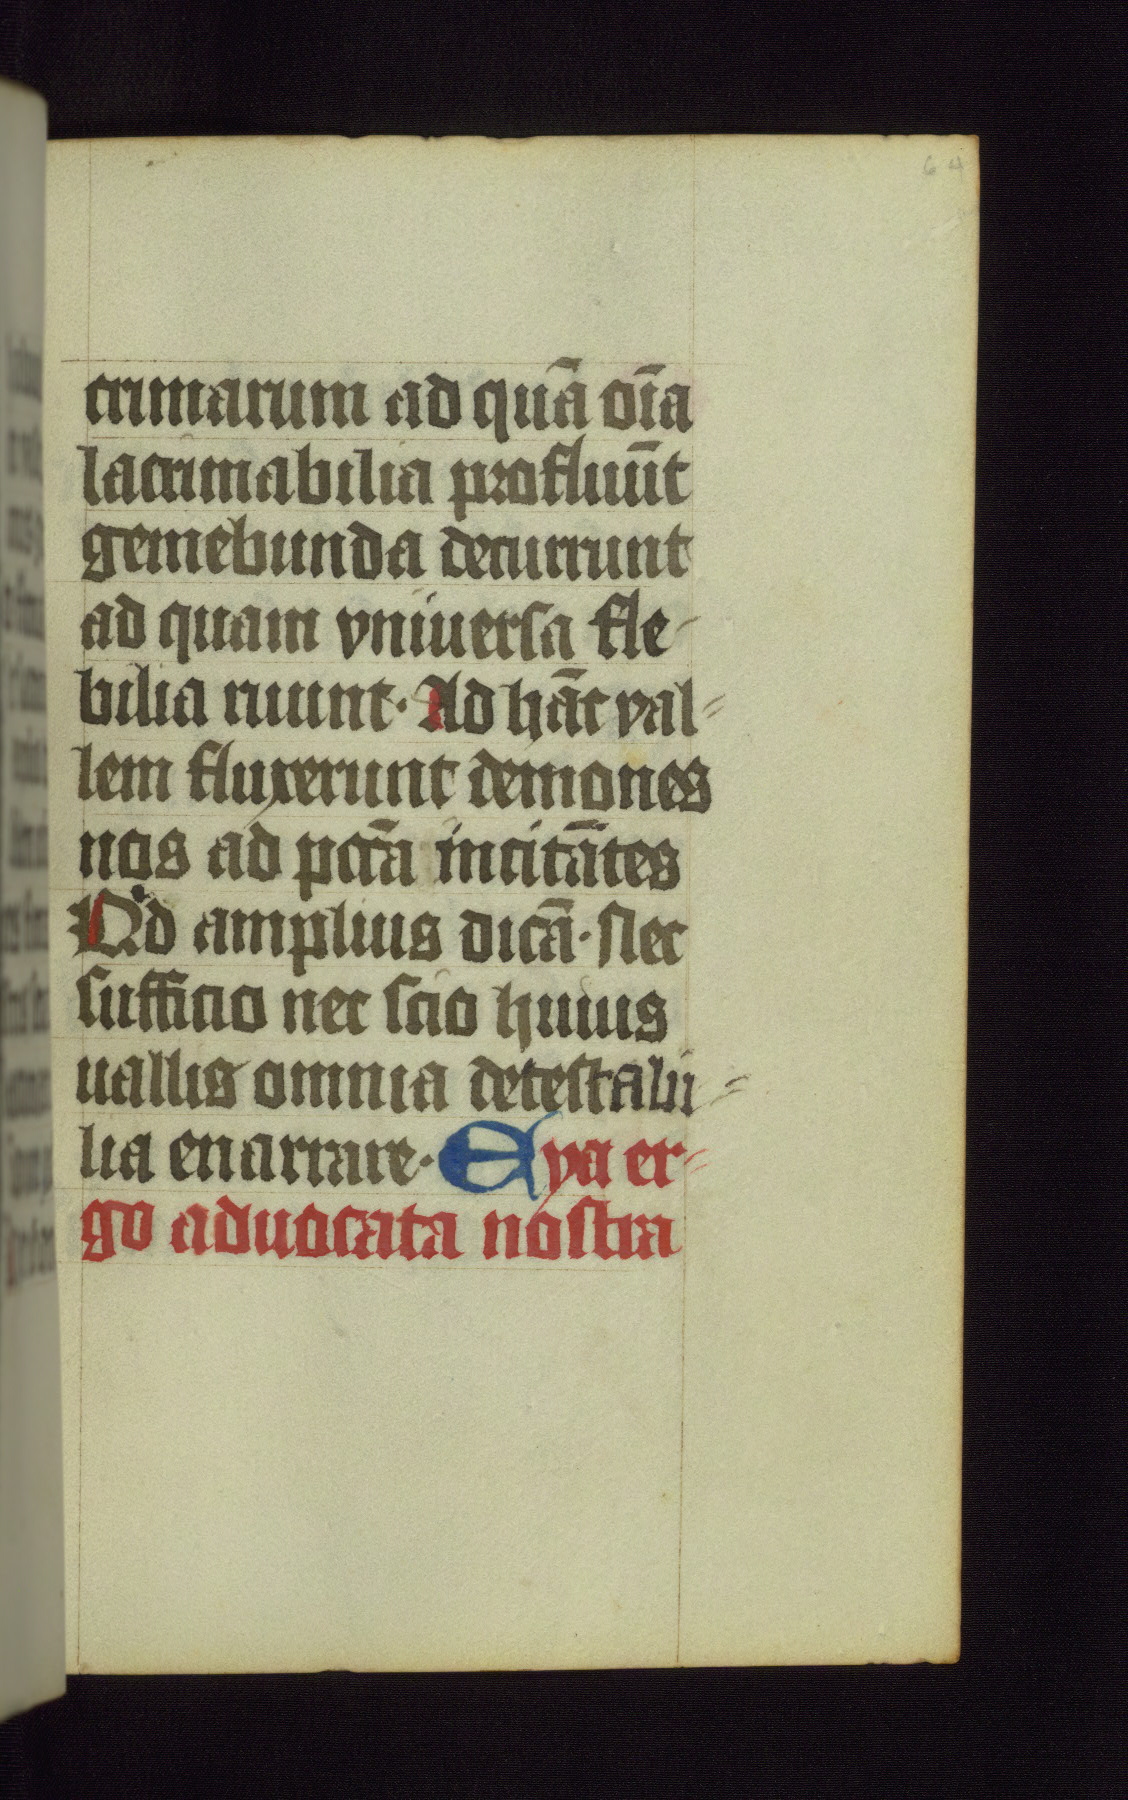 64
crimarum ad quā oīa
lacrimabilia profluūt
gemebunda decurrunt
ad quam vniuersa fle-
bilia ruunt· Ad hāc val-
lem fluxerunt demones
nos ad pctā incitātes
Qd amplius dicā· Nec
sufficio nec scio huius
uallis omnia detestabi-
lia enarrare· Eya er-
go aduocata nostra